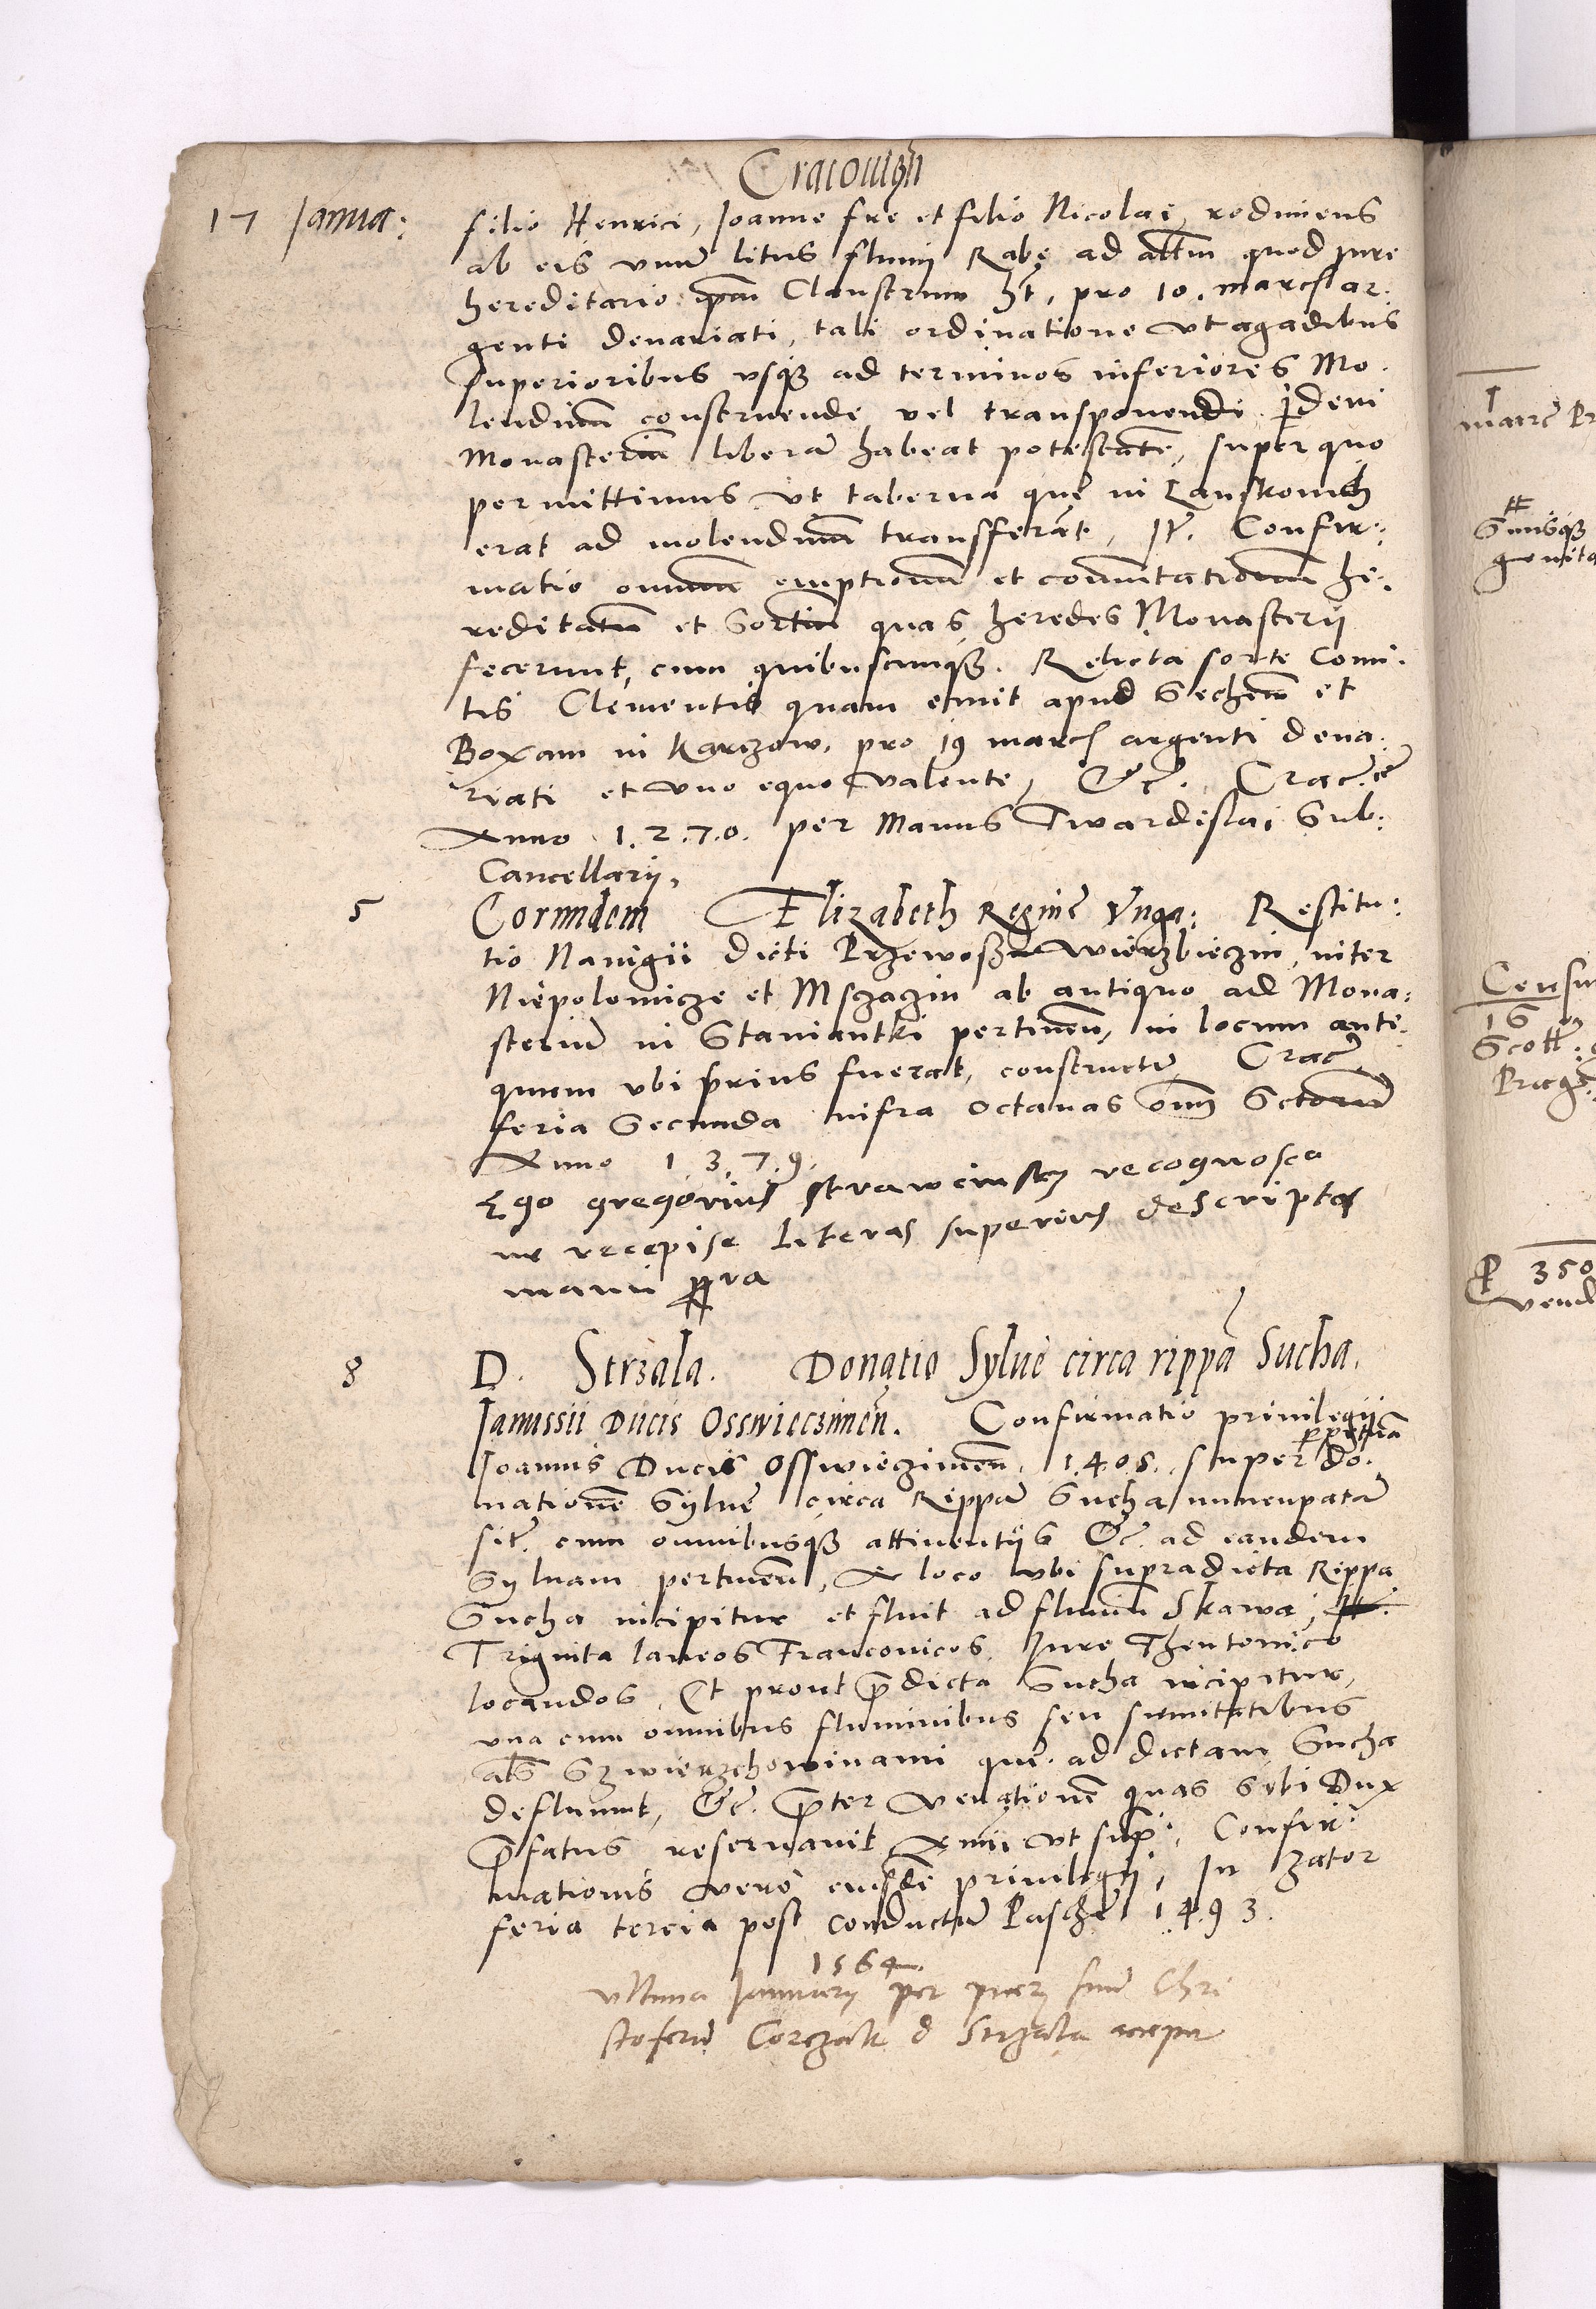 Cracouien
17 Janua:
filio Henrici, Joanne fre et filio Nicolai, redimens
ab eis vnum litus flumi Rabę ad altm quod jure
hereditario ipm Claustrum ht, pro 10. marcs ar:
genti denariati, tali ordinatione vt a gadibus
superioribus vsq ad terminos inferiores Mo:
lendinum construende vel transponendi pdeni
Monasterium liberã habeat potestatẽ, super quo
permittimus vt taberna quę in Lanskowicz
erat ad molendinum transferat, It. Confir:
matio omnium emptionum et commutationum he:
reditatum et Sortium quas heredes Monasterij
fecerunt, cum quibuscunq. Relicta sorte Comi:
tis Clementis quam emit apud Sechen et
Boxam in Karczow, pro 19 marcs argenti dena:
riati et vno equo valente, Etc. Crac: ẽ
Anno 1.2.7.0. per Manus Twardislai Sub:
Cancellarij,
5 Corundem Elizabeth Reginę Vnga: Restitu:
tio Nauigii dicti Przewosz Wierzbieczin, inter
Niepolomicze et Msczaczin ab antiquo ad Mona:
sterium in Staniantki pertinen, in locum anti:
quum vbi prius fuerat, constructę, Crac
feria Secunda infra octauas omn Sctorum
Anno 1 3.7.9.
Ego gregorius strawinsky recognosco
me recepise literas superius descriptas
manu ppra
8 D. Strzala. Donatio Sylue circa rippã Sucha.
Janussii Ducis Osswieczimen. Confirmatio priuilegii
Joannis Ducis Osswieczimen, 1.4.0.5. super perpetuã do:
nationẽ Syluę circa Rippã Sucha nuncupatã
sit. cum omnibusq attinentijs Etc. ad eandem
Syluam pertinen, A loco vbi supradicta Rippa
Sucha incipitur et fluit ad fluuiũ Skawa,
Triginta laneos Franconicos Jure Theutonico
locandos. Et prout p̃dicta Sucha incipitur,
vna cum omnibus fluminibus seu sumitatibus
als Szwierzchowinami que ad dictam Sucha
defluunt, Etc. P̃ter Venationẽ quas sibi Dux
p̃fatus reseruauit Anni vt sup:, Confir:
mationis vero eiusdẽ priuilegij, In Zator
feria tercia post conductũ Paschę 1 4.9 3.
1564.
vltima Januarij per puerũ suũ Chri
stoferũ Corczak d Strzala accepit